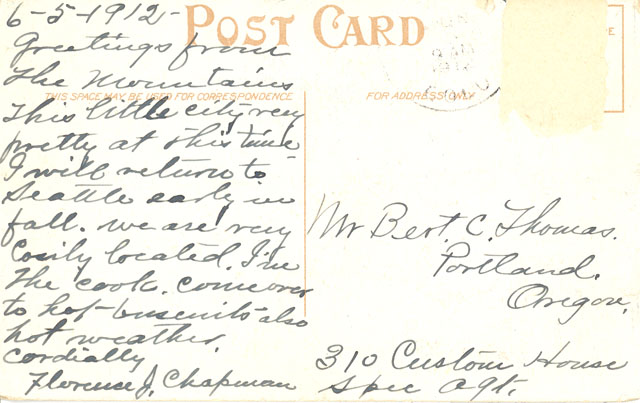 6-5-1912-
POST CARD
Greetings from
the mountains
THIS SPACE MAY BE USED FOR CORRESPONDENCE
FOR ADDRESS ONLY
This little city very
pretty at this time
I will return to
Seattle early in
fall. We are very
Cosily located. I'm
the cook. Come over
to hot busenits also
hot weather.
Cordially
Florence J. Chapman
Mr Bert. C. Thomas.
Portland.
Oregon.
310 Custom House
Spec Agt.